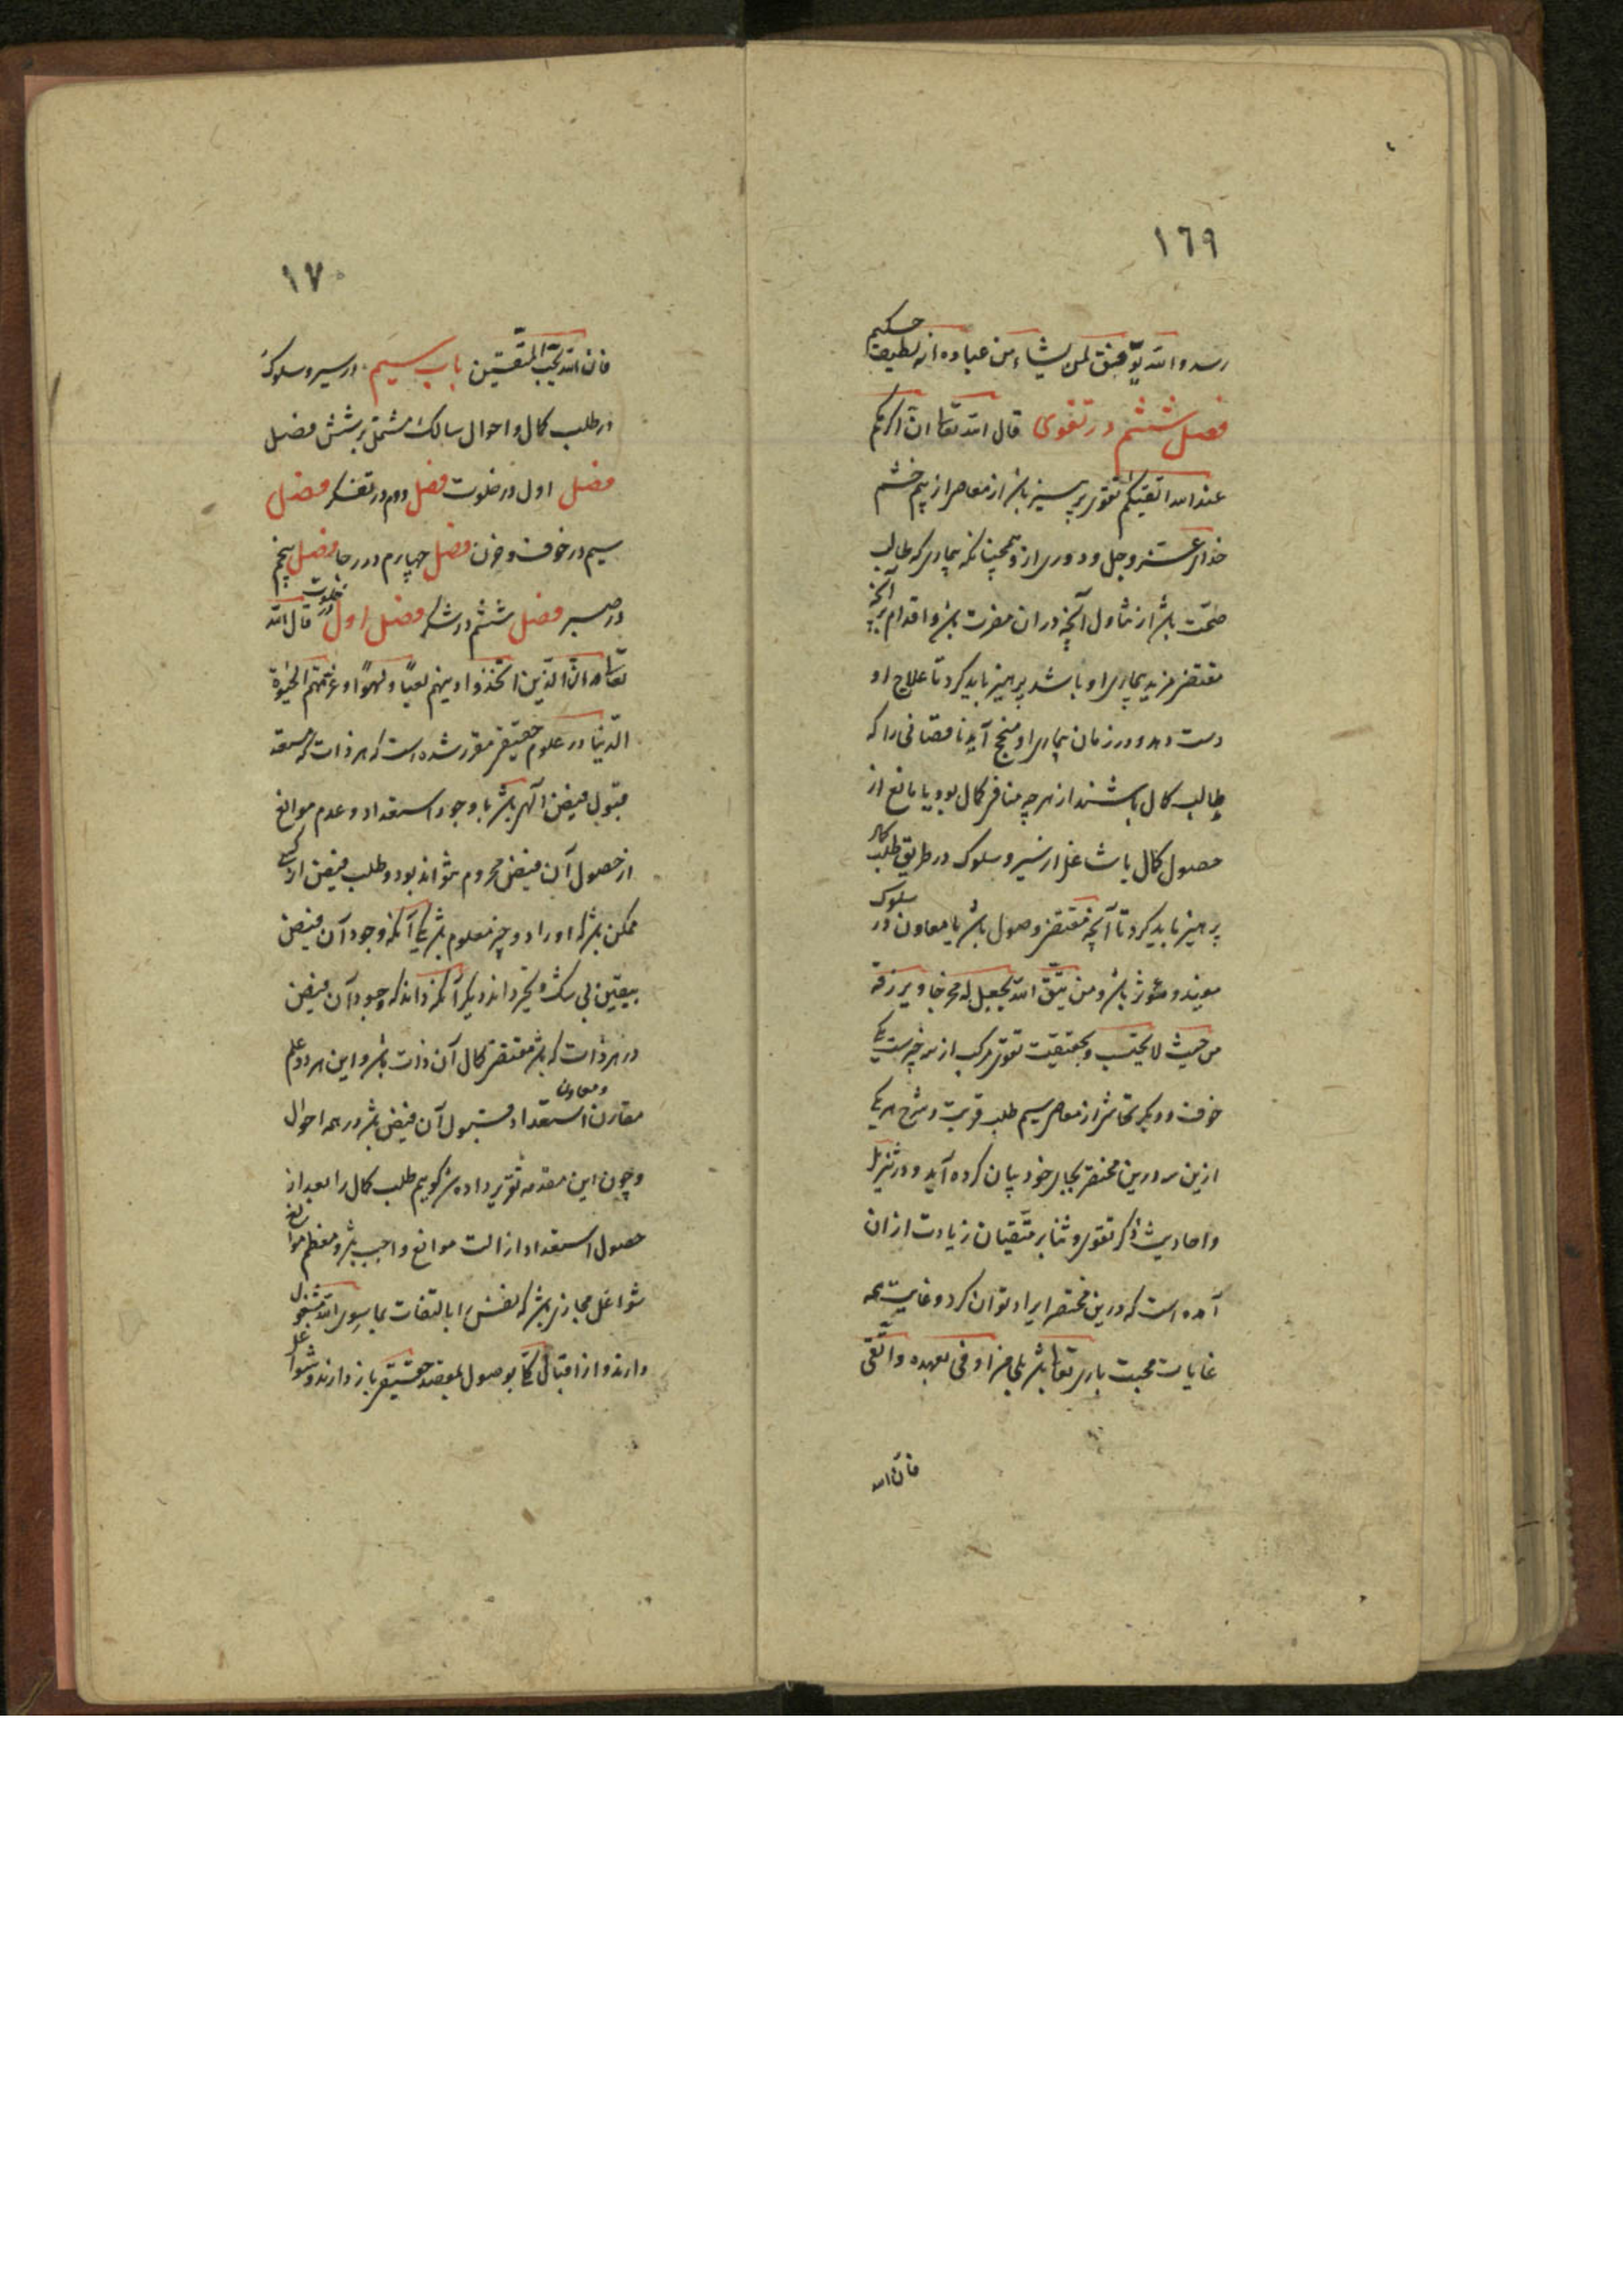 ١٦٩
رسد والله یوفق لمن یشاء من عباده انه لطیف حکیم
فصل ششم در تقوی قال الله تعا ان اکرمکم
عند الله اتقیکم تقوی پرهیز باشد از معاصی از بیم خشم
خدای عز و جل و دوری از و همچنانکه بیماری که طالب
صحت باشد از تناول آنچه در ان مضرت باشد و اقدام بر آنچه
مقتضی مزید بیماری او باشد پرهیز باید کرد تا علاج او
دست دهد و در زمان بیماری او منجح آید ناقصانی را که
طالب کمال باشند از هر چه منافی کمال بود یا مانع از
حصول کمال یا شاغل از سیر و سلوک در طریق طلب کمال
پرهیز باید کرد تا آنچه مقتضی وصول باشد یا معاون در سلوک
مفید و مؤثر باشد و من یتق الله یجعل له مخرجا و یرزقه
من حیث لا یحتسب و بحقیقت تقوی مرکب از سه چیزست یکی
خوف و دیگر تحاشی از معاصی سیم طلب قربت و شرح هر یکی
ازین سه درین مختصر بجای خود بیان کرده آید و در تنزیل
و احادیث ذکر تقوی و ثنا بر متقیان زیادت از ان
آمده است که درین مختصر ایراد توان کرد و غایت همه
غایات محبت باری تعا باشد بلی من اوفی بعهده و اتقی
فان الله
١٧٠
فان الله یحب المتقین باب سیم در سیر و سلوک
در طلب کمال و احوال سالک مشتمل بر شش فصل
فصل اول در خلوت فصل دوم در تفکر فصل
سیم در خوف و حزن فصل چهارم در رجا فصل پنجم
در صبر فصل ششم در شکر فصل اول در خلوت قال الله
تعا ان الذین اتخذوا دینهم لعبا و لهوا و غرتهم الحیوة
الدنیا در علوم حقیقی مقرر شده است که هر ذات که مستعد
قبول فیض الهی باشد با وجود استعداد و عدم موانع
از حصول آن فیض محروم نتواند بود و طلب فیض از کسی
ممکن باشد که او را دو چیز معلوم باشد یکی آنکه وجود آن فیض
بیقین بی شک و تحیر داند دیگر آنکه داند که وجود آن فیض
در هر ذات که باشد مقتضی کمال آن ذات باشد و این هر دو علم
مقارن و معاون استعداد قبول آن فیض باشد در همه احوال
و چون این مقدمه تقریر داده شد گوییم طلب کمال را بعد از
حصول استعداد ازالت موانع واجب باشد و معظم موانع
شواغل مجازی باشد که نفس را بالتفات بما سوی الله مشغول
دارند و از اقبال کلی بوصول بمقصد حقیقی باز دارند و شواغل